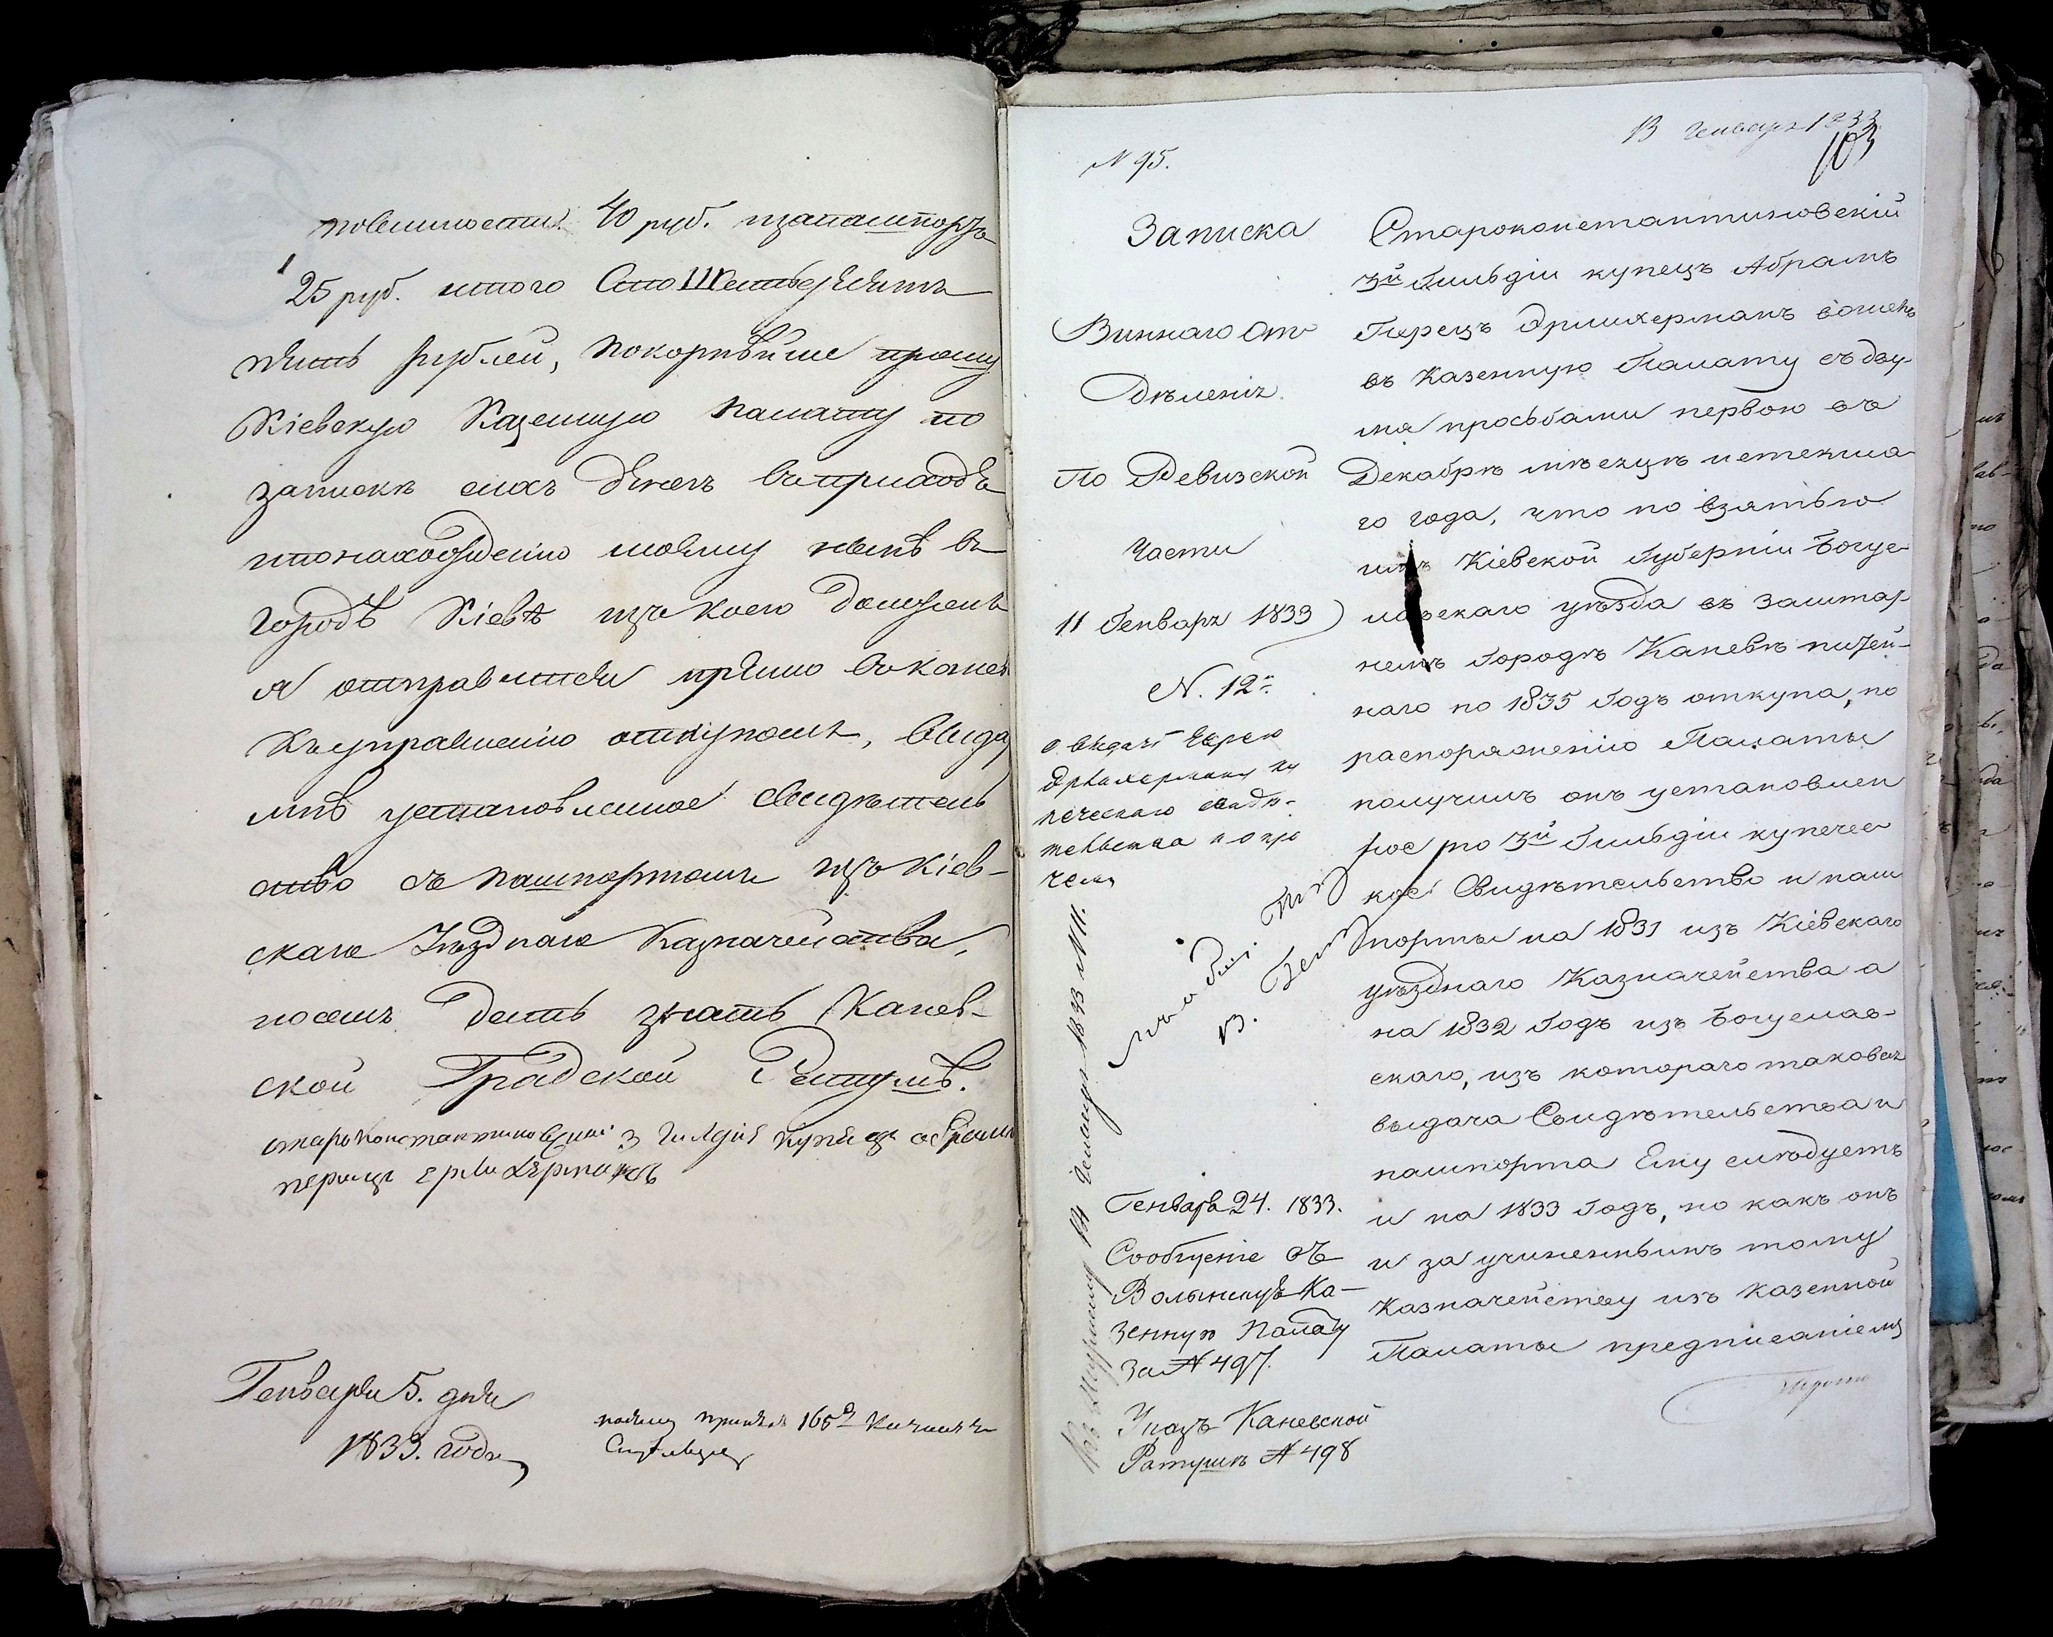 повинностей 40 руб. изапашпортъ
25 руб. итого Сто Шестьдесятъ
пять рублей, покорнѣйше прошу
Кіевскую Казенную Палату по
записки сихъ денегъ воприходъ
ипонахожденію моему нынѣ въ
городѣ Кіевѣ изъ коего долженъ
я отправится прямо вокане
Къуправленію откупомъ, выда
мнѣ установленное свидѣтель
ство съ пашпортомъ изъ Кіев-
скаго Уѣзднаго Казначейства,
посемъ дать знать Канев-
ской Градской Ратушѣ.
староконстантиновский 3 гилдия купецъ абрамъ
перецъ ерлихерманъ
Генваря 5. дня
1833. года
13 Генваря 1833
103
N 95.
Записка
Виннаго От
дѣленія
По Ревизской
Части
11 Генваря 1833
N. 12й
о выдачѣ Еврею
Эрлихерману ку
печескаго свидѣ-
тельства и о про
чемъ
Генваря 24. 1833.
Сообщеніе въ
Волынскую Ка-
зенную Палату
За N 497.
Указъ Каневской
Ратушѣ N 498
Староконстантиновскій
3й Гильдіи купецъ Абрамъ
Перецъ Эрлихерманъ вошелъ
въ Казенную Палату съ дву-
мя просьбами первою въ
Декабрѣ мѣсяцѣ истекша
го года, что по взятью
имъ Кіевской Губерніи Богу-
славскаго уѣзда въ Заштат-
номъ Городѣ Каневѣ питей-
наго по 1835 Годъ откупа, по
распоряженію Палаты
получилъ онъ установлен
ное по 3й Гильдіи купечес
кое Свидѣтельство и паш
порты на 1831 изъ Кіевскаго
уѣзднаго Казначейства а
на 1832 Годъ изъ Богуслав-
скаго, изъ котораго таковая
выдача Свидѣтельства и
пашпорта Ему слѣдуетъ
и на 1833 Годъ, но какъ онъ
и за учиненнымъ тому
Казначейству изъ Казенной
Палаты предписаніемъ